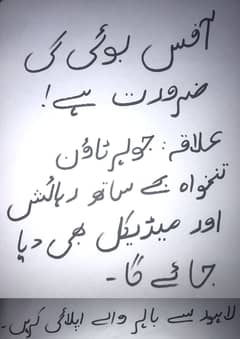 آفس بوئی کی
ضرورت ہے!
علاقہ: جوہر ٹاؤن
تنخواہ کے ساتھ رہائش
اور میڈیکل بھی دیا
جائے گا۔
لاہور سے باہر والے اپلائی کریں۔